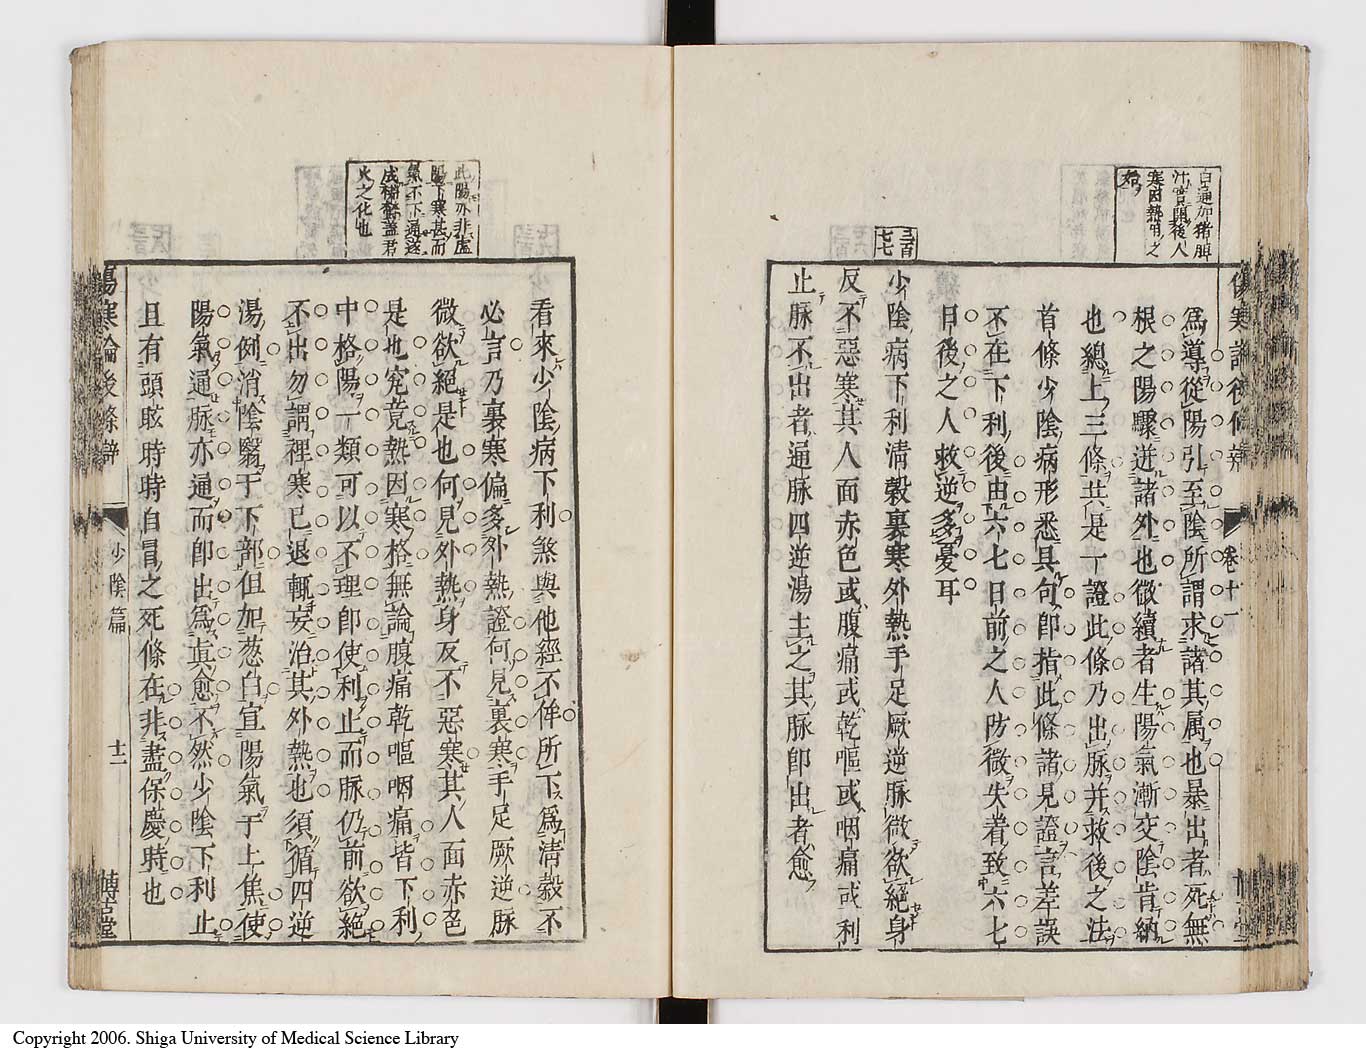 傷寒論後條辨
卷十一
白通加猪膽
汁實開後人
寒因熱用之
爲導從陽引至陰所謂求諸其属也暴出者死無
根之陽驟迸諸外也微續者生陽氣漸交陰肯納
也總上三條共是一證此條乃出脉并救後之法
首條少陰病形悉具句卽指此條諸見證言差誤
不在下利後由六七日前之人防微失著致六七
日後之人救逆多憂耳
三百
七七
少陰病下利清穀裏寒外熱手足厥逆脉微欲絕身
反不惡寒其人面赤色或腹痛或乾嘔或咽痛或利
止脉不出者通脉四逆湯主之其脉卽出者愈
此腸亦非虛
陽下寒甚而
氣不下通遂
成
火之化也
看來少陰病下利煞與他經不侔所下爲清穀不
必言乃裏寒偏多外熱證何見裏寒手足厥逆脉
微欲絕是也何見外熱身反不惡寒其人面赤色
是也究竟熱因寒格無論腹痛乾嘔咽痛皆下利
中格陽一類可以不理卽使利止而脉仍前欲絕
不出勿謂裡寒已退輒妄治其外熱也須循四逆
湯例消陰翳于下部但加葱白宣陽氣于上焦使
陽氣通脉亦通而卽出爲眞愈不然少陰下利止
且有頭眩時時自冒之死條在非盡保慶時也
傷寒論後條辨
少陰篇
十二
博古堂
Copyright 2006. Shiga University of Medical Science Library